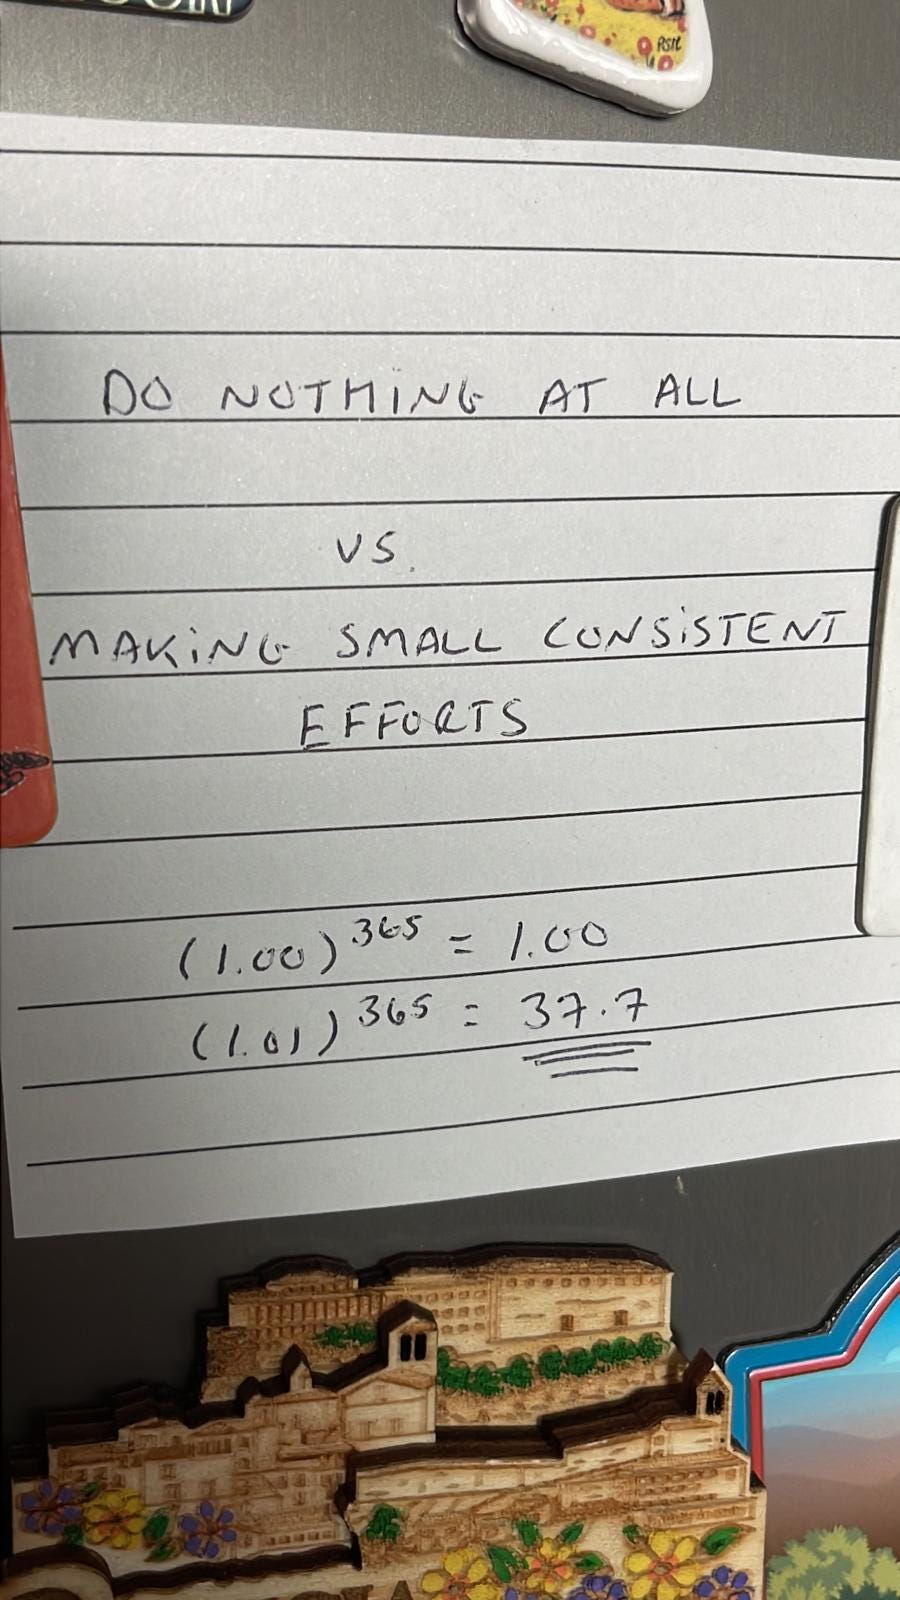 RSM
DO NOTHING AT ALL
VS.
MAKING SMALL CONSISTENT
EFFORTS
(1.00)^365 = 1.00
(1.01)^365 = 37.7